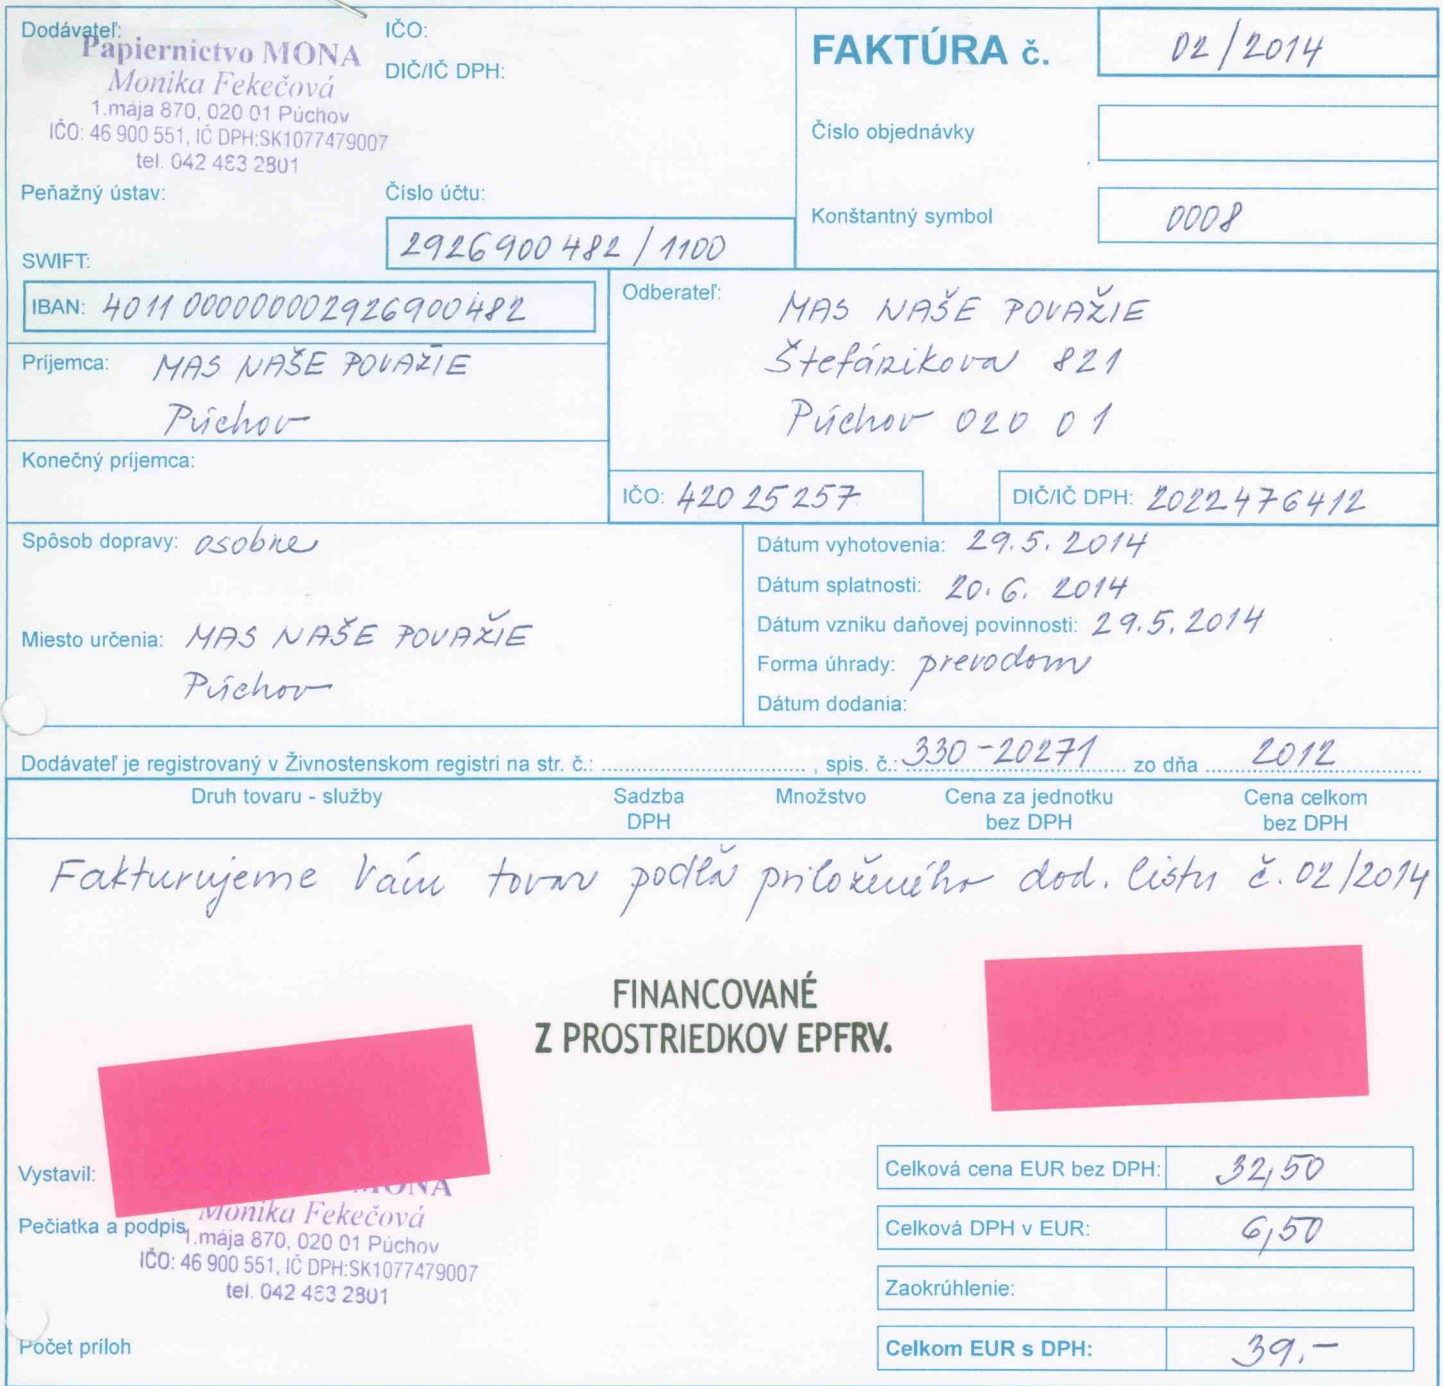 Dodávateľ:
Papiernictvo MONA
Monika Fekečová
1.mája 870, 020 01 Púchov
IČO: 46 900 551, IČ DPH:SK1077479007
tel. 042 463 2801
IČO:
DIČ/IČ DPH:
FAKTÚRA č. 02/2014
Číslo objednávky
Konštantný symbol 0008
Peňažný ústav:
Číslo účtu:
2926900482/1100
SWIFT:
IBAN: 4011 0000000002926900482
Príjemca: MAS NAŠE POVAŽIE
Púchov
Konečný príjemca:
Odberateľ: MAS NAŠE POVAŽIE
Štefánikova 821
Púchov 020 01
IČO: 42025257
DIČ/IČ DPH: 2022476412
Spôsob dopravy: osobne
Miesto určenia: MAS NAŠE POVAŽIE
Púchov
Dátum vyhotovenia: 29.5.2014
Dátum splatnosti: 20.6.2014
Dátum vzniku daňovej povinnosti: 29.5.2014
Forma úhrady: prevodom
Dátum dodania:
Dodávateľ je registrovaný v Živnostenskom registri na str. č.: ........ , spis. č.: 330-20271 zo dňa 2012
Druh tovaru - služby Sadzba DPH Množstvo Cena za jednotku bez DPH Cena celkom bez DPH
Fakturujeme Vám tovar podľa priloženého dod. listu č. 02/2014
FINANCOVANÉ
Z PROSTRIEDKOV EPFRV.
Vystavil:
Pečiatka a podpis
MONA
Monika Fekečová
1.mája 870, 020 01 Púchov
IČO: 46 900 551, IČ DPH:SK1077479007
tel. 042 463 2801
Počet príloh
Celková cena EUR bez DPH: 32,50
Celková DPH v EUR: 6,50
Zaokrúhlenie:
Celkom EUR s DPH: 39.-